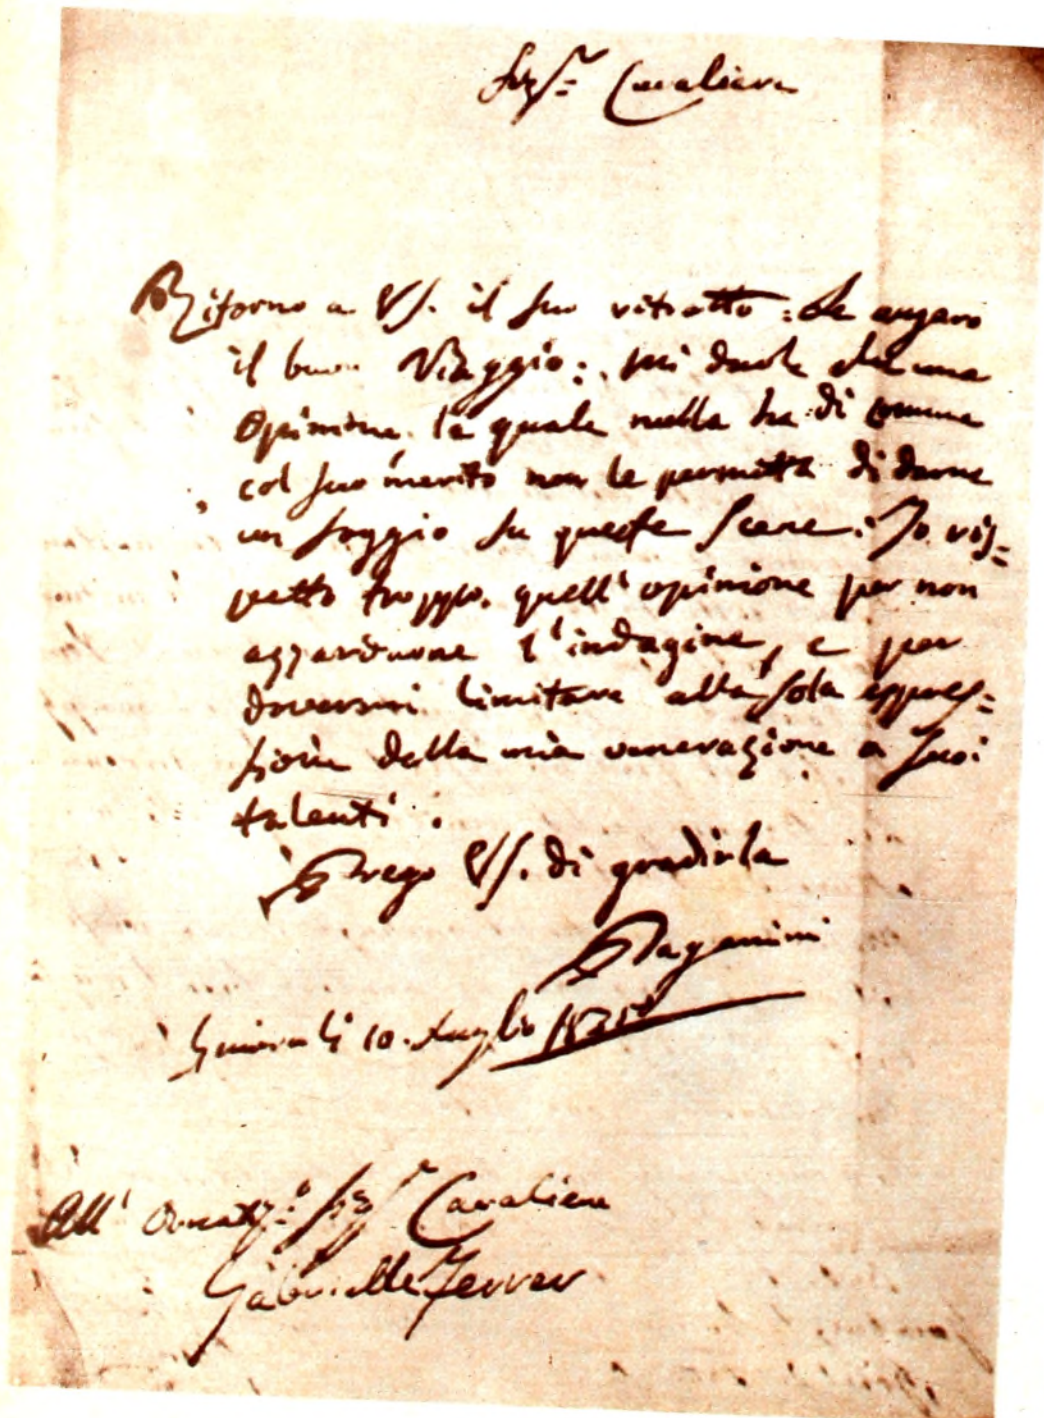 Sigr. Cavaliere
Ritorno a VS. il suo ritratto: Le auguro
il buon Viaggio: mi duole che una
Opinione, la quale nulla ha di comune
col suo merito non le permetta di darne
un saggio su queste Scene: Io ris=
petto troppo quell'opinione per non
l'indagine, e per
dovermi limitare alla sola espres=
sione della mia venerazione a suoi
talenti.
Prego VS. di gradirla
Paganini
li 10. Luglio
All' Ornatmo: Sigr Cavaliere
Gabrielle Ferrer